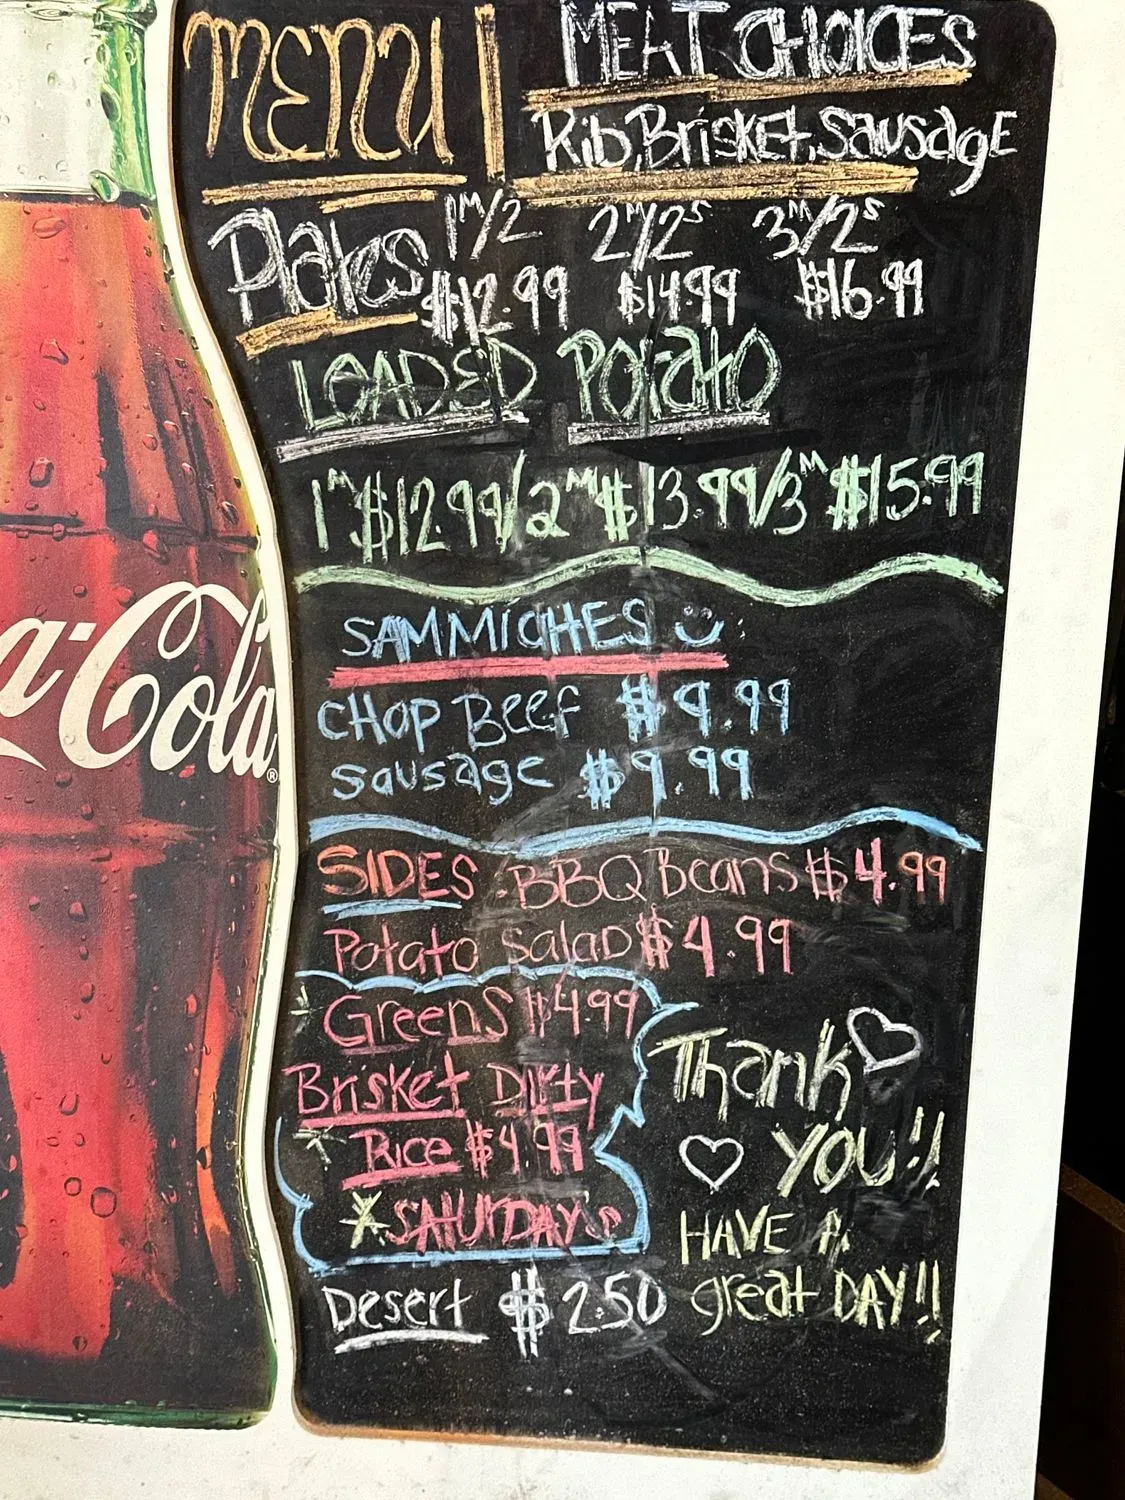 MENU
MEAT CHOICES
Rib, Brisket, SausagE
Plates 1M/2 2M/2S 3M/2S
$12.99 $14.99 $16.99
LOADED POtatO
1M $12.99/2M $13.99/3M $15.99
SAMMICHES
CHOP BEEF $9.99
sausage $9.99
a-Cola®
SIDES: BBQ Beans $4.99
Potato Salad $4.99
GreenS $4.99
Brisket Dirty
Rice $4.99
*SAtUrDAY's
Thank
YOU!!
HAVE A
great DAY!!
Desert $2.50